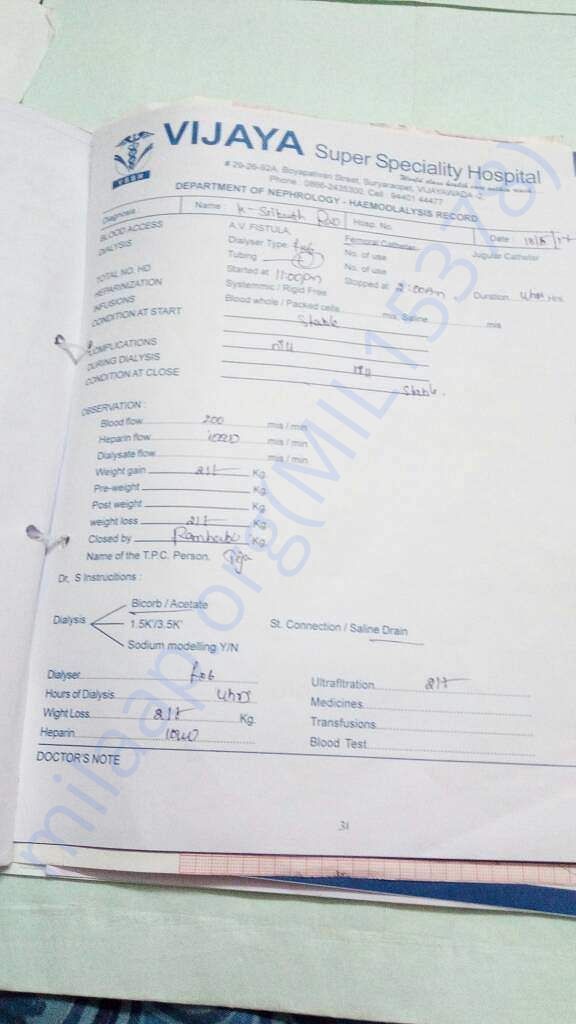 VIJAYA Super Speciality Hospital
VSSH
World class health care within reach
# 29-26-92A, Boyapativari Street, Suryaraopet, VIJAYAWADA-2.
Phone : 0866-2435300, Cell : 94401 44477
DEPARTMENT OF NEPHROLOGY - HAEMODLALYSIS RECORD
Diagnosis Name : K. Rao Hosp. No. Date :
BLOOD ACCESS A.V. FISTULA, Femoral Catheter Jugular Catheter
DIALYSIS Dialyser Type f06 No. of use
Tubing No. of use
TOTAL NO. HD Started at 11:00pm Stopped at 2:00am Duration 4hrs Hrs.
HEPARINIZATION Systemmic / Rigid Free
INFUSIONS Blood whole / Packed cells mis, Saline mis
CONDITION AT START Stable
COMPLICATIONS Nil
DURING DIALYSIS Nil
CONDITION AT CLOSE Stable.
OBSERVATION :
Blood flow 200 mis / min
Heparin flow 1000 mis / min
Dialysate flow mis / min
Weight gain 2lt Kg.
Pre-weight Kg.
Post weight Kg.
weight loss 2lt Kg.
Closed by Rambabu Kg.
Name of the T.P.C. Person.
Dr, S Instrucitions :
Bicorb / Acetate
Dialysis 1.5K'/3.5K' St. Connection / Saline Drain
Sodium modelling Y/N
Dialyser f06 Ultrafltration 2lt
Hours of Dialysis 4hrs Medicines
Wight Loss 2lt Kg. Transfusions
Heparin 1000 Blood Test
DOCTOR'S NOTE
31
milaap.org(MIL15378)